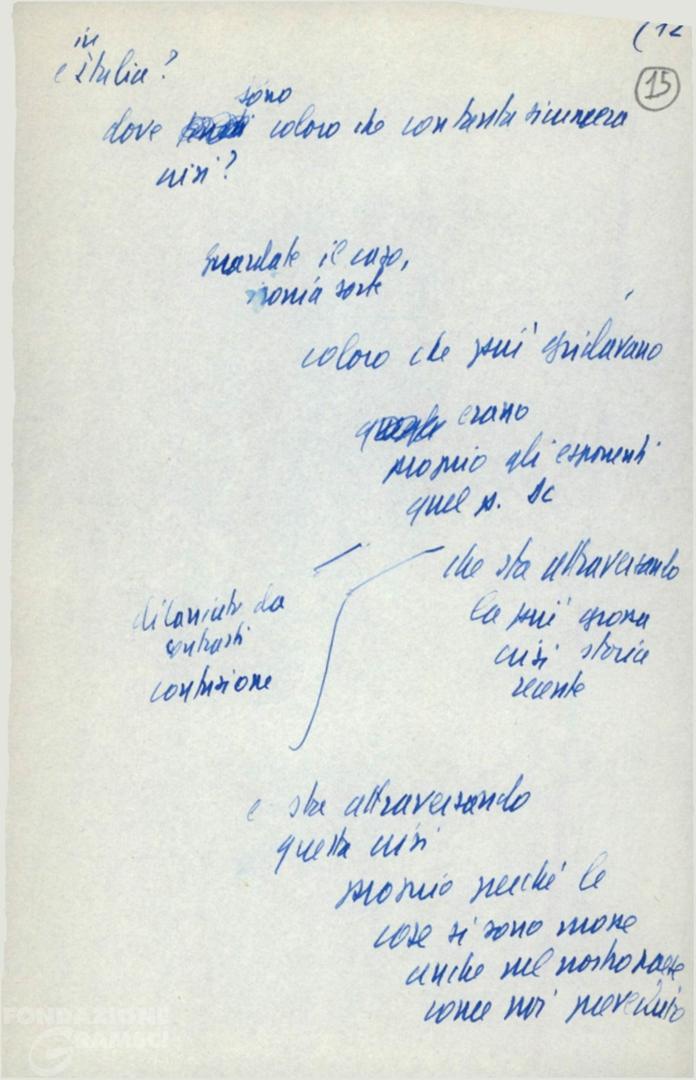 (12
15
in
e Italia?
sono
dove coloro che con tanta sicumera
crisi?
guardate il caso,
ironia sorte
coloro che più gridavano
erano
proprio gli esponenti
quel p. DC
che sta attraversando
la più grossa
crisi storia
recente
dilaniato da
contrasti
confusione
e sta attraversando
questa crisi
proprio perché le
cose si sono mosse
anche nel nostro paese
come noi prevedevamo
FONDAZIONE
GRAMSCI